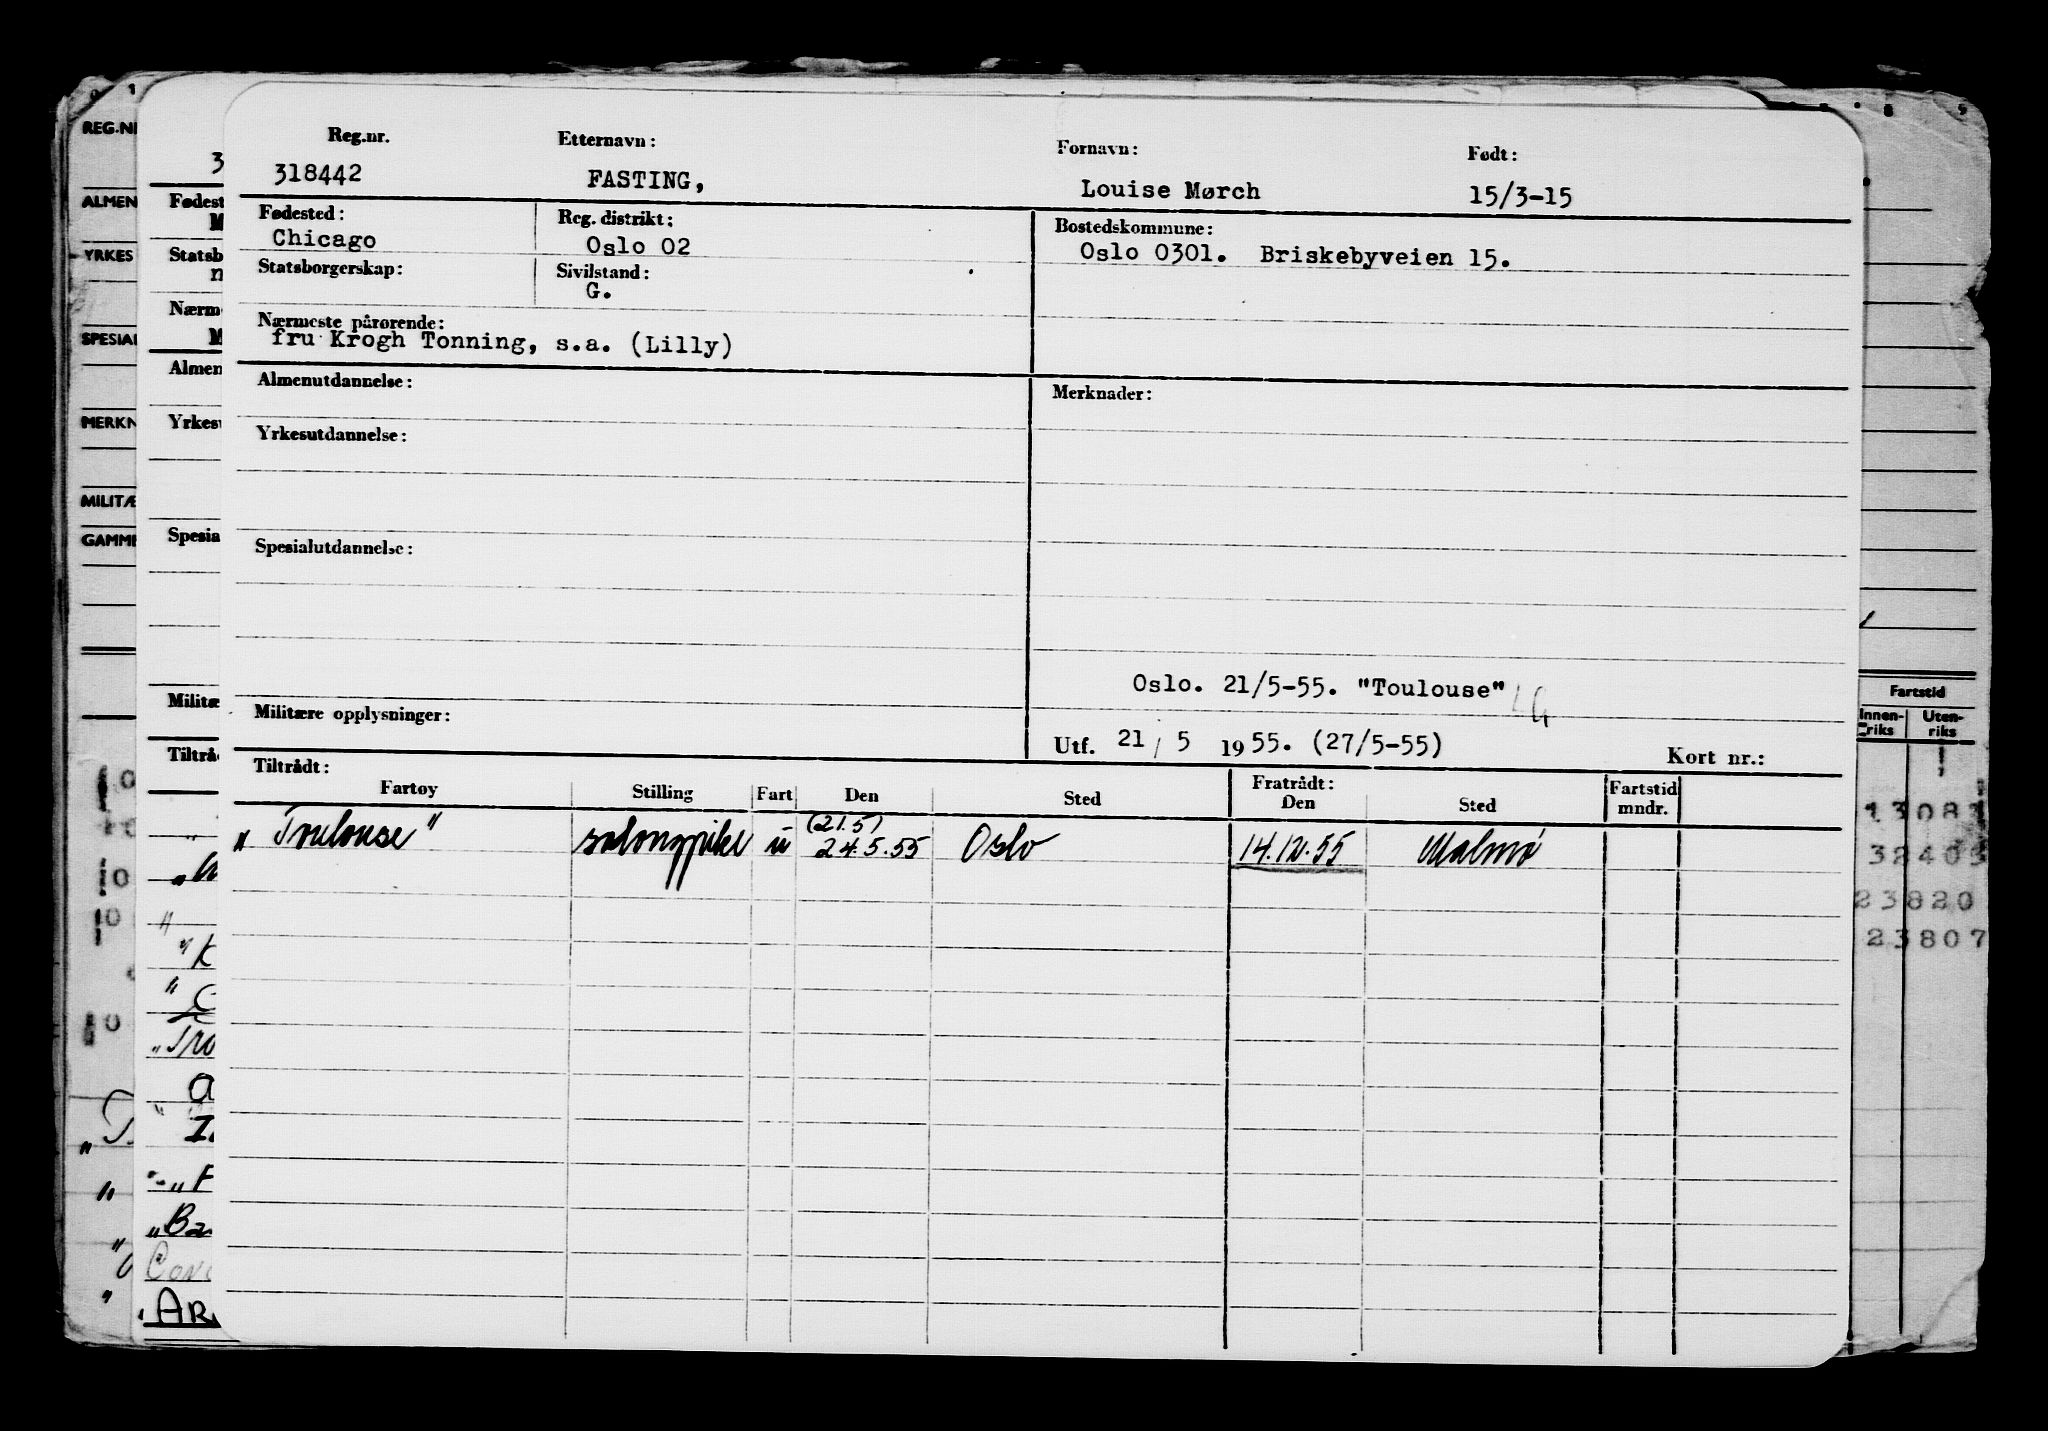 Reg.nr. Etternavn: Fornavn: Født:
318442 FASTING, Louise Mørch 15/3-15
Fødested: Reg. distrikt: Bostedskommune:
Chicago Oslo 02 Oslo 0301. Briskebyveien 15.
Statsborgerskap: Sivilstand:
G.
Nærmeste pårørende:
fru Krogh Tonning, s.a. (Lilly)
Almenutdannelse: Merknader:
Yrkesutdannelse:
Spesialutdannelse:
Oslo. 21/5-55. "Toulouse"
Militære opplysninger:
Utf. 21 / 5 1955. (27/5-55) Kort nr.:
Tiltrådt: Fratrådt: Fartstid
Fartøy Stilling Fart Den Sted Den Sted mndr.
(21.5)
"Toulouse" salongpike u 24.5.55 Oslo 14.12.55 Malmø
REG.NR
ALMEN
YRKES
SPESIAL
MERKN
MILITÆ
GAMME
3
Fødest
M
Statsb
n
Nærm
M
Almen
Yrkesu
Spesia
Militæ
Tiltråd
"Tro
"Ba
Cono
AR
Fartstid
Innen-riks Uten-riks
13081
32405
23820
23807